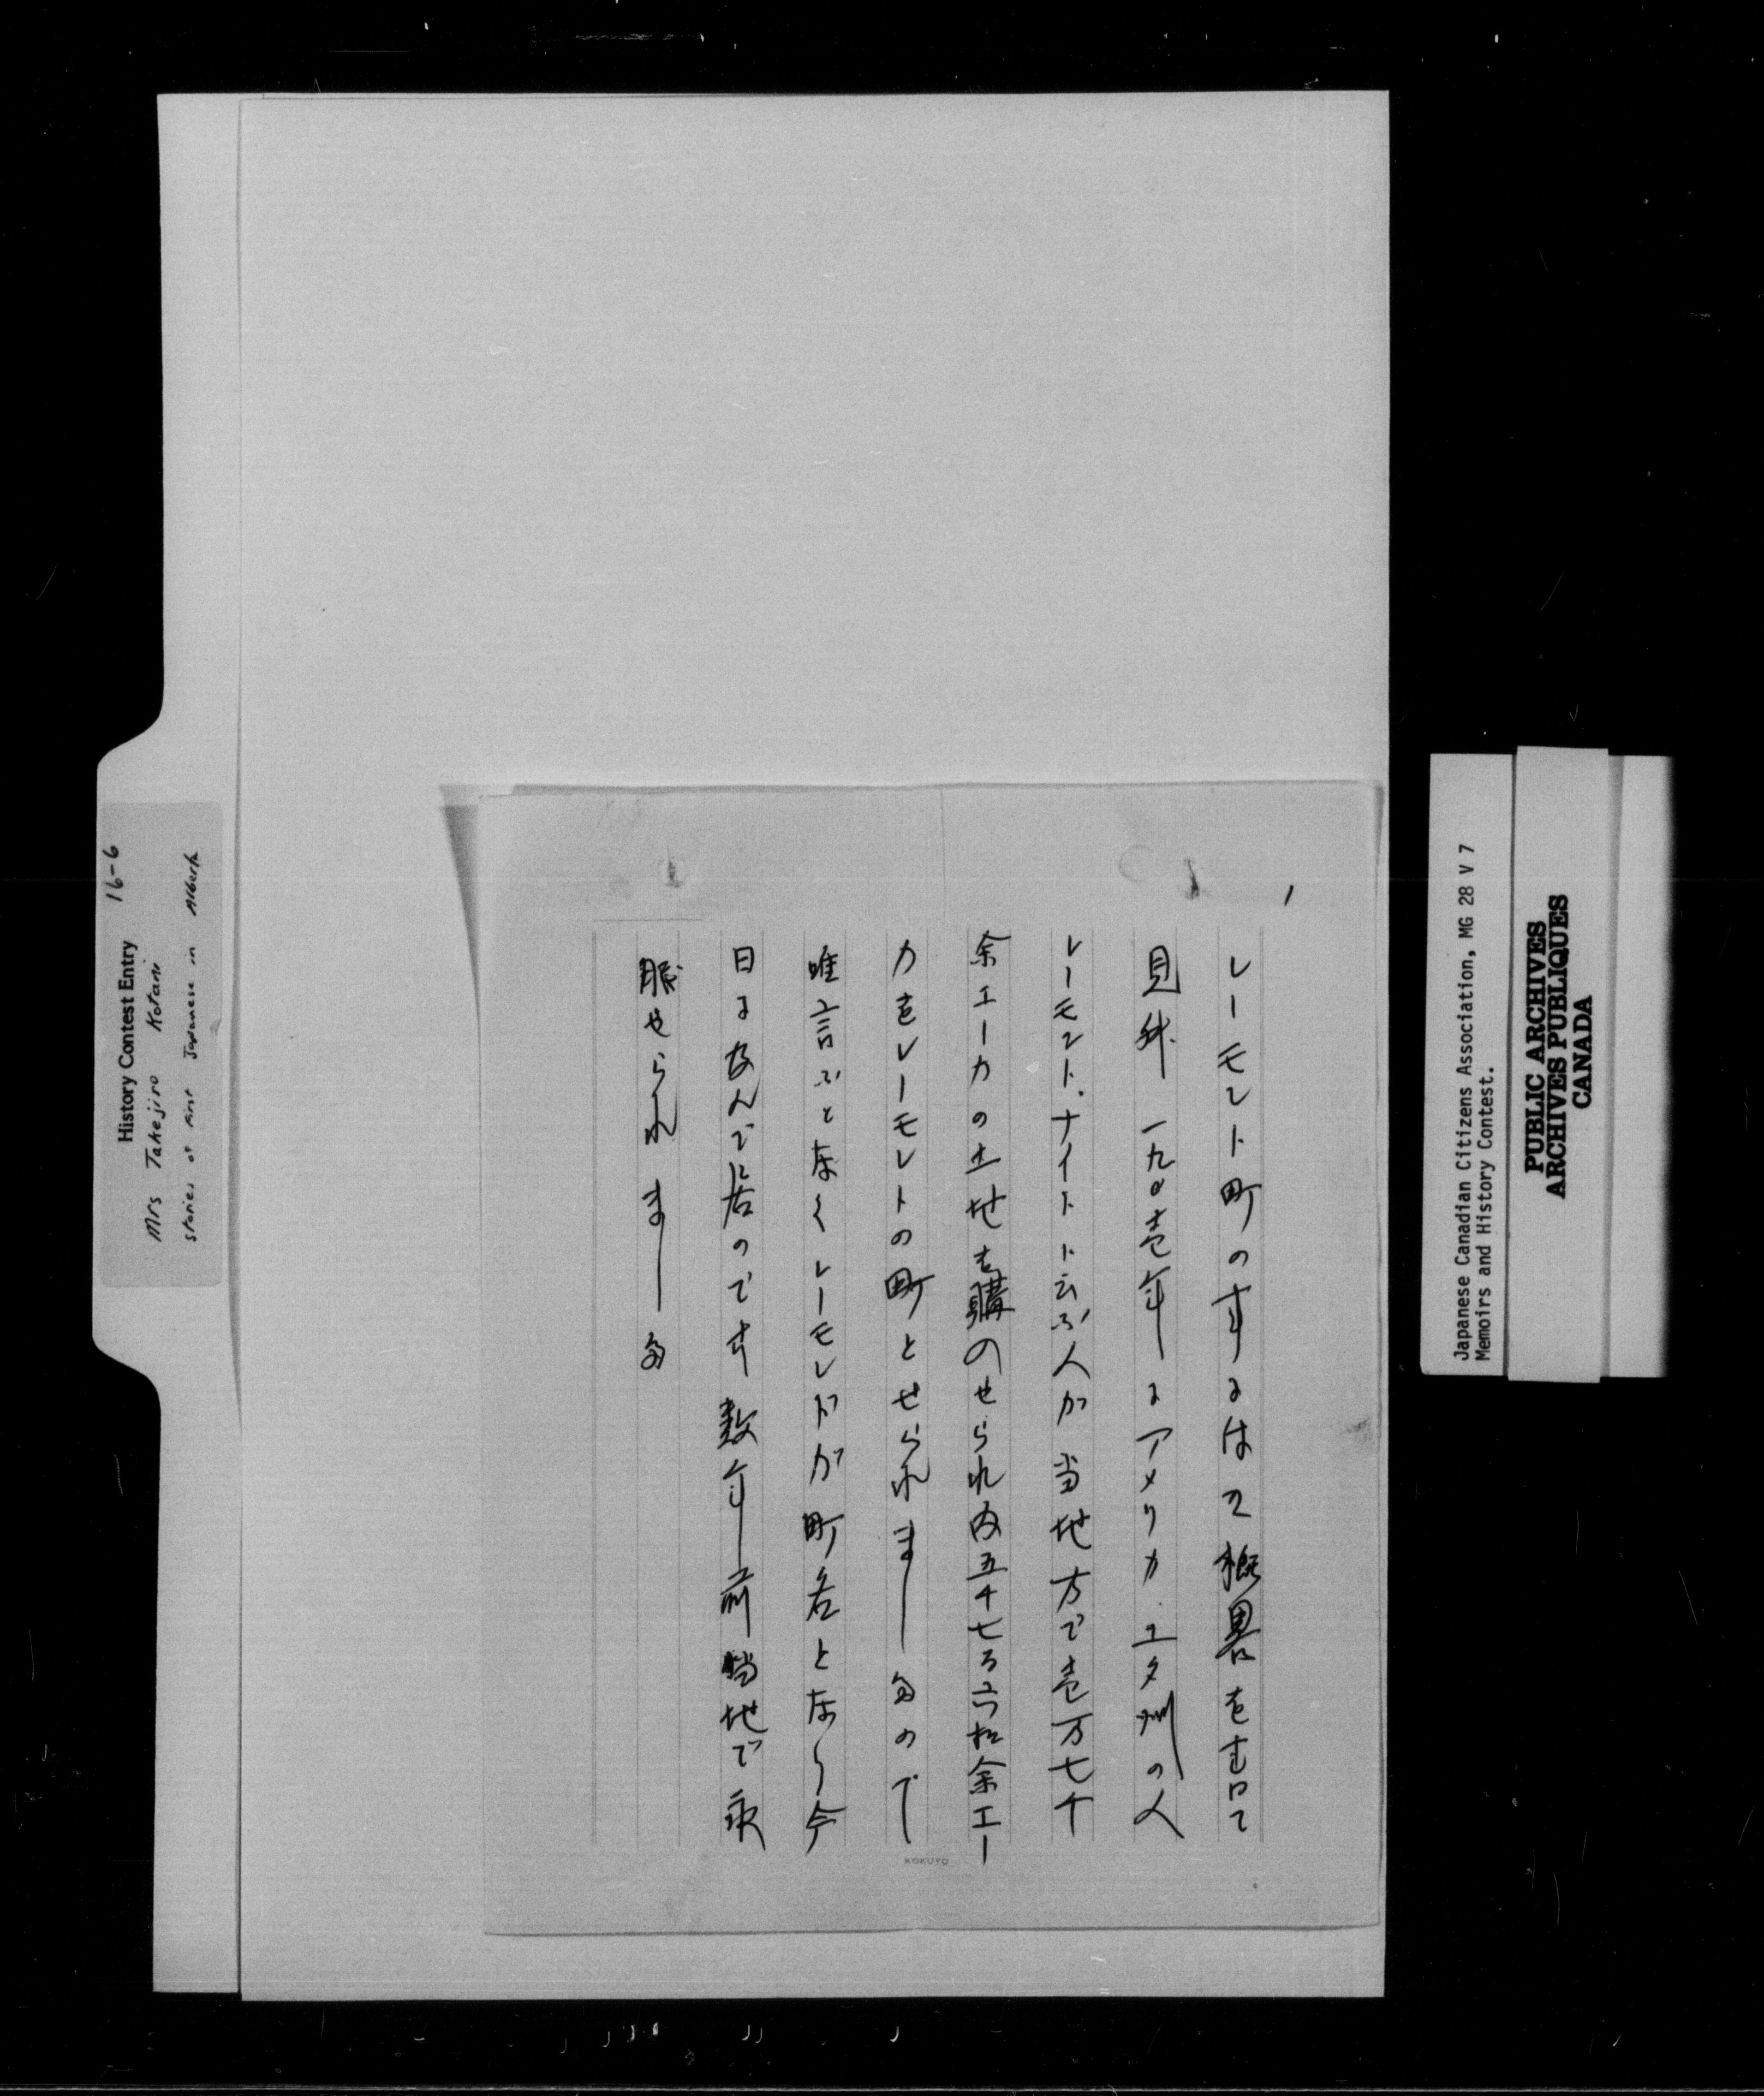 History Contest Entry 16-6
Mrs Takejiro Kotani
Stories of First Japanese in Alberta
1
レーモント町のすにはて概畧を書て
見升 一九〇壱年にアメリカ ユタ州の人
レーモント.ナイトト云ふ人が当地方で壱万七千
余エーカの土地を購のせられ内五千七百六拾余エー
カをレーモントの町とせられましたので
唯言ふと なくレーモンドが町名となり今
日に及んで居のです 数年前当地で永
眠せられました
KOKUYO
Japanese Canadian Citizens Association, MG 28 V 7
Memoirs and History Contest.
PUBLIC ARCHIVES
ARCHIVES PUBLIQUES
CANADA